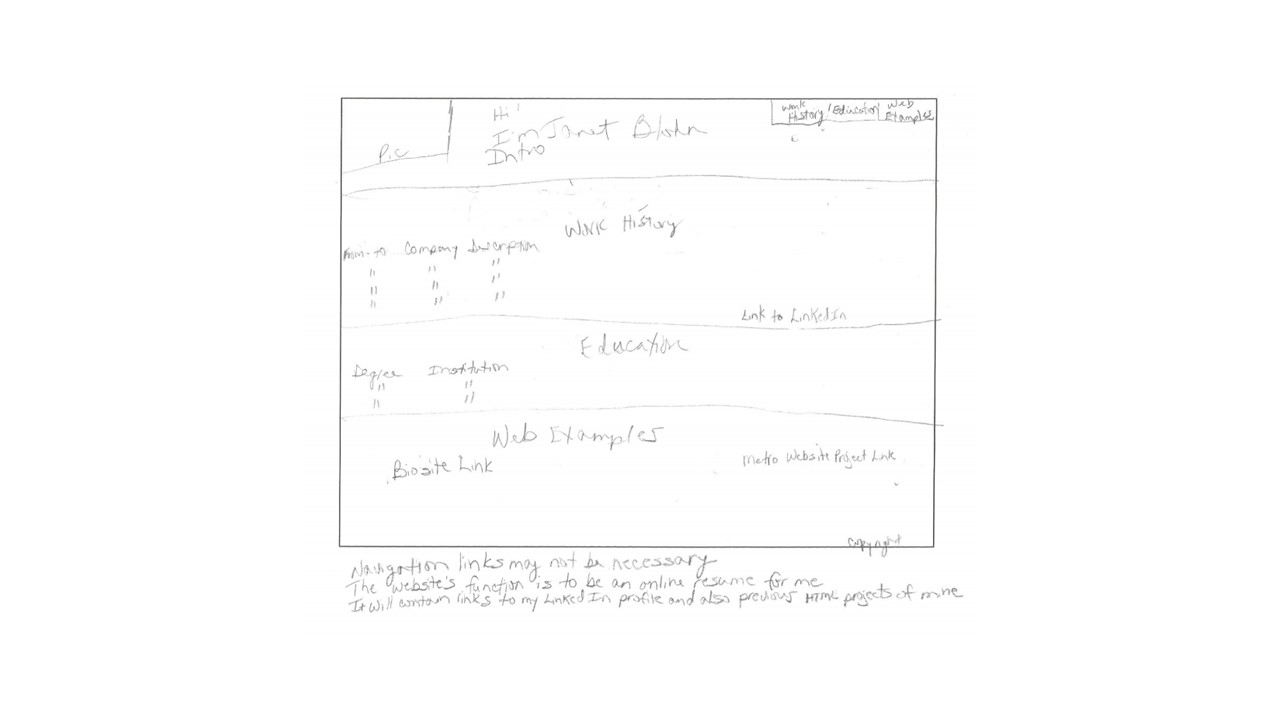 Pic
Hi!
I'm Janet
Intro
Work History / Education / Web Examples
Work History
From-to Company Description
" " "
" " "
" " "
Link to LinkedIn
Education
Degree Institution
" "
" "
Web Examples
Biosite Link
Metro Website Project Link
Copyright
Navigation links may not be necessary
The website's function is to be an online resume for me
It will contain links to my LinkedIn profile and also previous HTML projects of mine